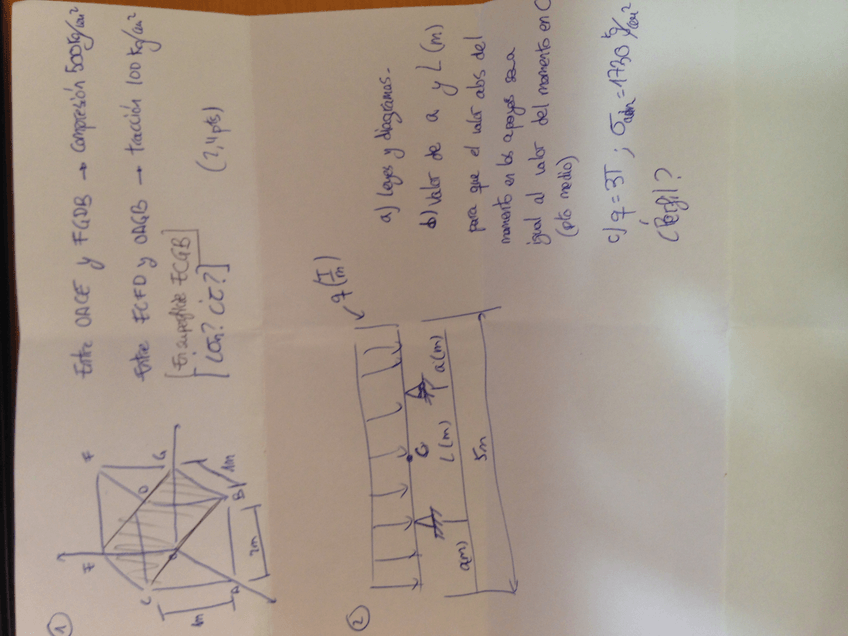 ①
Entre OACE y FGDB → Compresión 500 kg/cm²
Entre ECFD y OAGB → tracción 100 kg/cm²
[En superficie ECGB]
[¿σn? ¿τ?]
(2,4 pts)
E
F
C
D
G
O
A
B
1m
2m
1m
②
q (T/m)
G
a(m)
L(m)
a(m)
5m
a) Leyes y diagramas.
b) Valor de a y L (m)
para que el valor abs del
momento en los apoyos sea
igual al valor del momento en G
(pto medio)
c) q = 3T ; σadm = 1730 kg/cm²
¿Perfil?